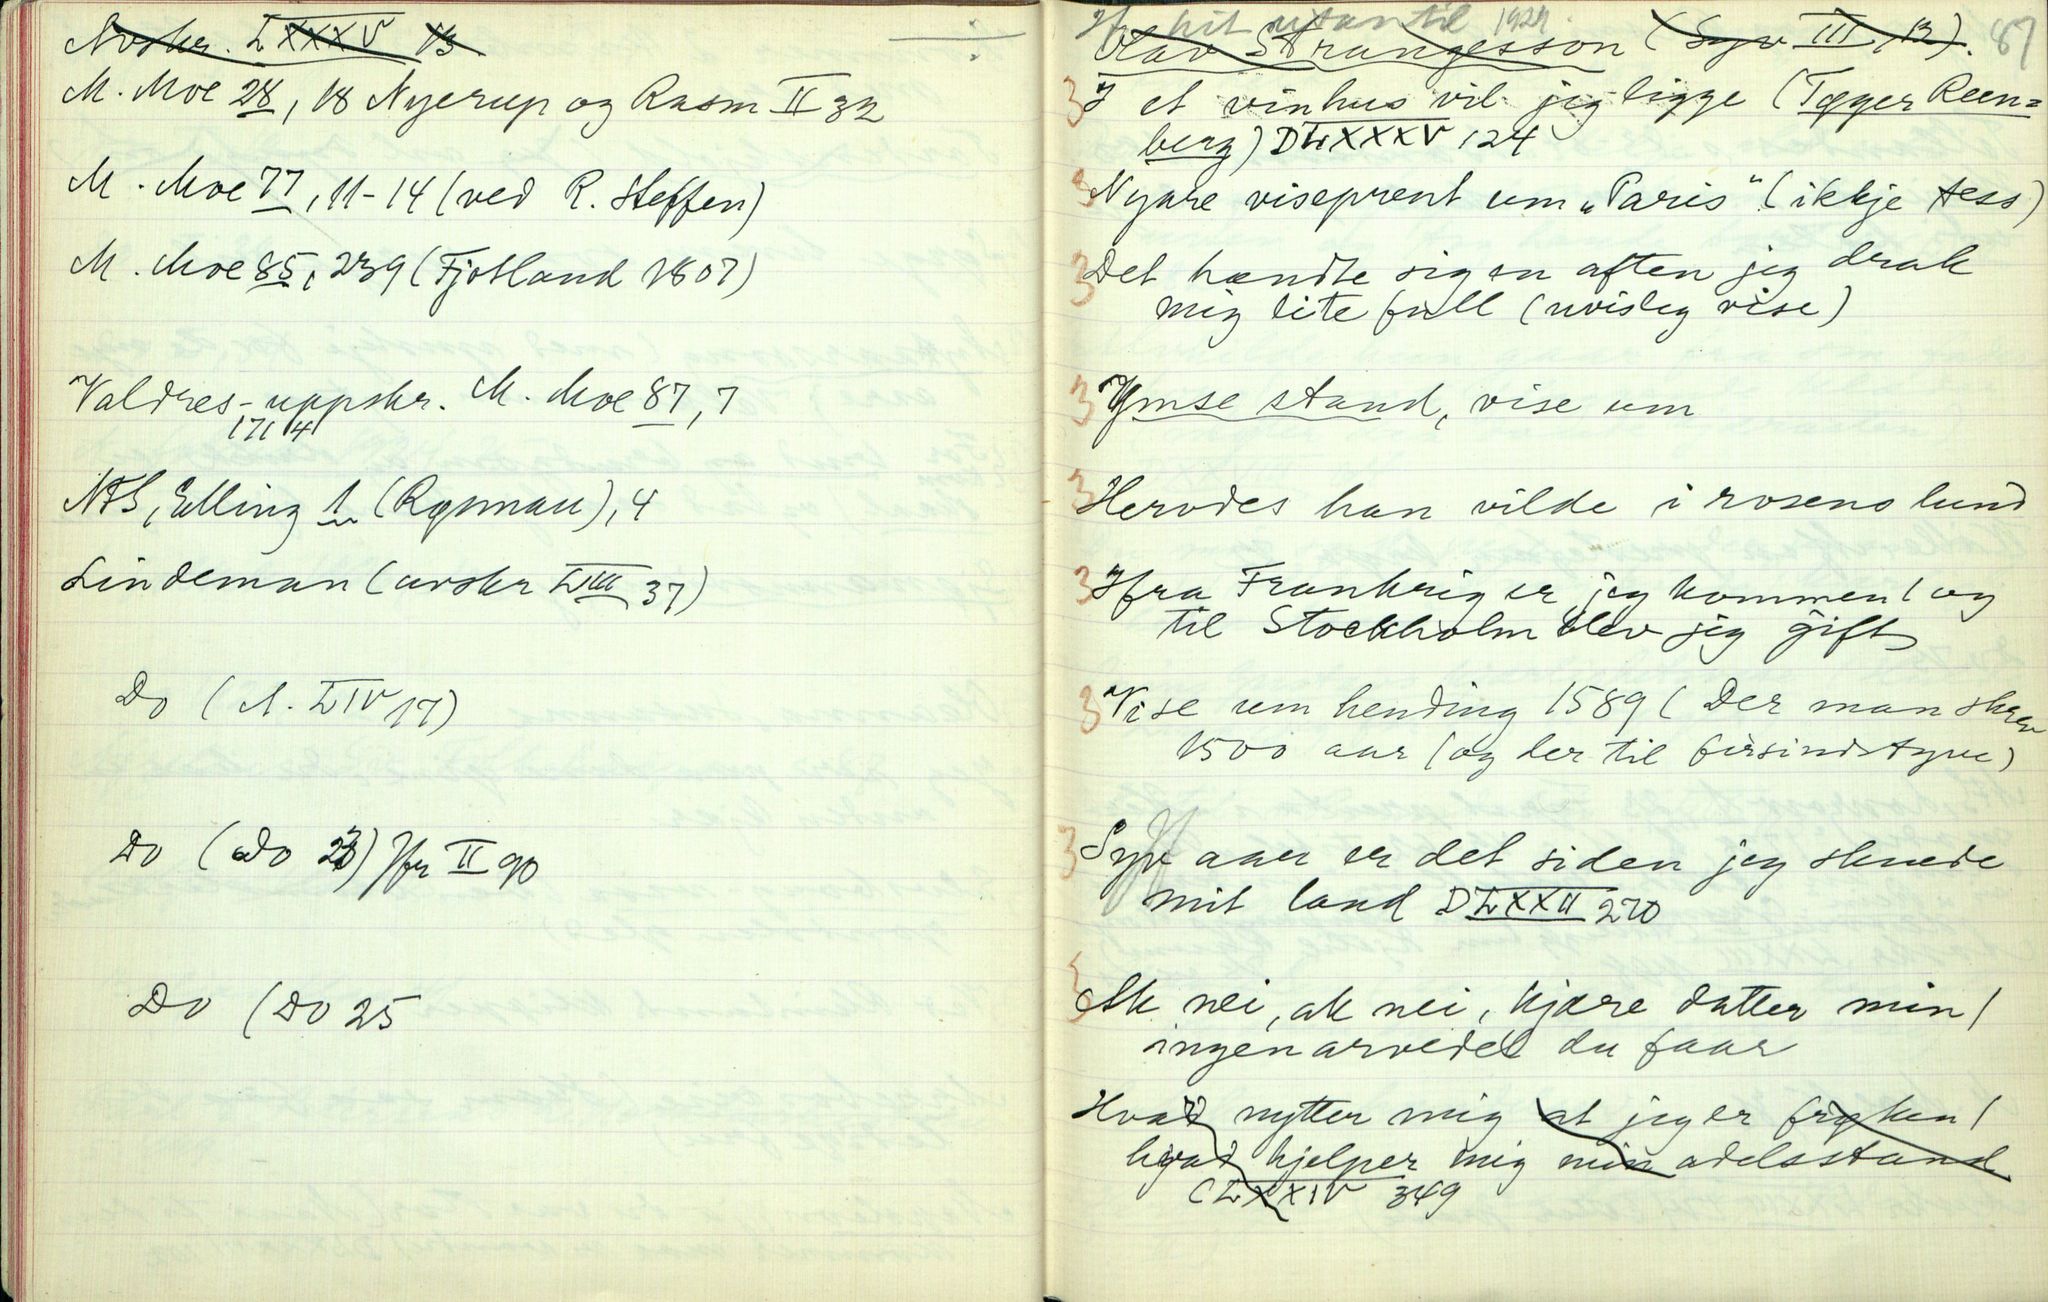 Avskr. LXXXV 13
M. Moe 28, 18 Nyerup og Rasm II 32
M. Moe 77, 11-14 (ved R. Steffen)
M. Moe 85, 239 (Fjotland 1807)
Valdres-uppskr. M. Moe 87, 7
1714
NFS, Elling 1 (Rysman), 4
Lindeman (avskr LIII 37)
Do (A. LIV 17)
Do (do 23) Jfr II 90
Do (Do 25
hit utan til 1924.
87
Olav Strangesson (Syv III, 13).
3 I et vinhus vil jeg ligge (Tøger Reen=
berg) DLXXXV 124
3 Nyare viseprent um "Paris" (ikkje tess)
3 Det hændte sig en aften jeg drak
mig lite full (uvisleg vise)
3 Ymse stand, vise um
3 Herodes han vilde i rosens lund
3 Ifra Frankrig er jeg kommen / og
til Stockholm blev jeg gift
3 Vise um hending 1589 (Der man skrev
1500 aar / og der til firsindstyve)
3 Syv aar er det siden jeg skuede
mit land DLXXII 270
3 Ak nei, ak nei, kjære datter min /
ingen arvedel du faar
Hvad nytter mig at jeg er frøken /
hvad hjelper mig min adelsstand
(LXXIV 349